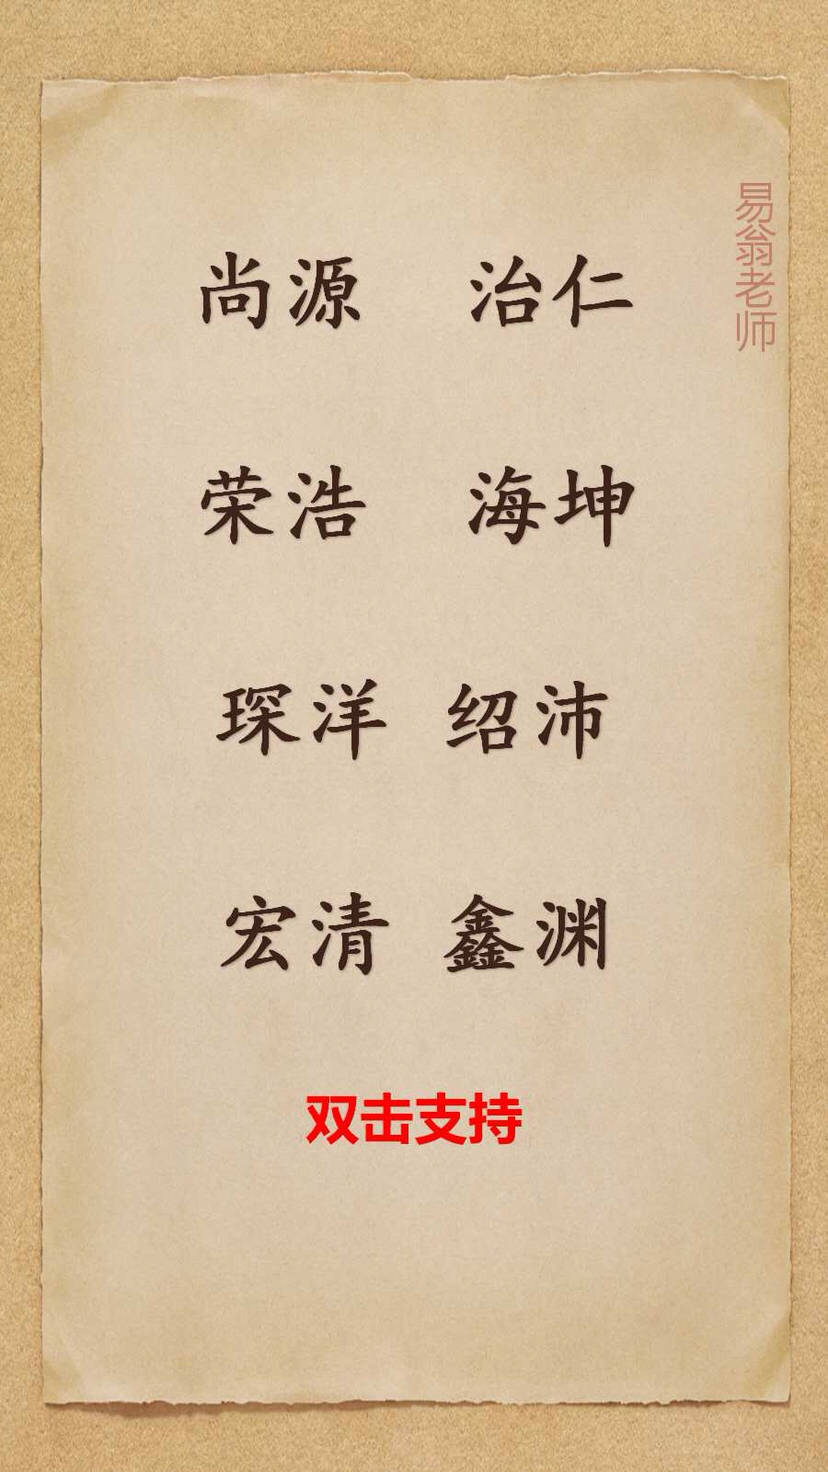 易翁老师
尚源 治仁
荣浩 海坤
琛洋 绍沛
宏清 鑫渊
双击支持